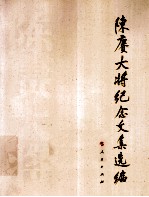 陳賡大將紀念文集选編
人民出版社